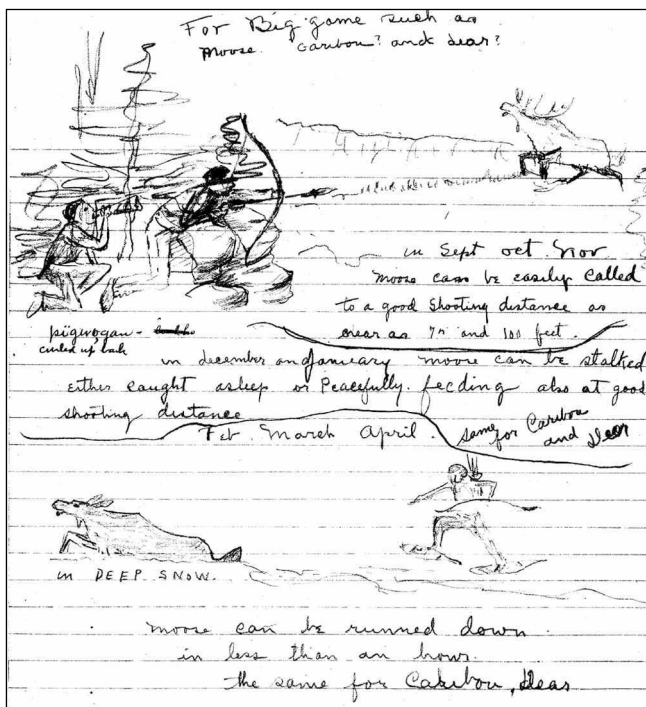 For Big game such as
moose. Caribou? and dear?
in Sept oct Nov
moose can be easily called
to a good shooting distance as
near as 75 and 100 feet.
pigwogan -
curled up bark
in december and January moose can be stalked
either caught asleep or Peacefully feeding also at good
shooting distance
Feb. March April. same for Caribou
and Deer
in DEEP SNOW.
moose can be runned down
in less than an hour.
the same for Caribou, Deas